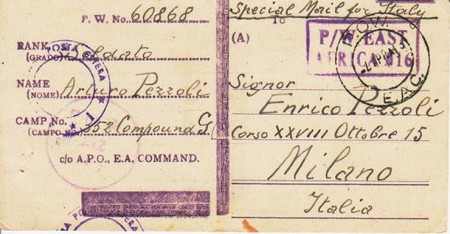 P. W. No. 60868
RANK Soldato
(GRADO)
NAME Arturo Pezzoli
(NOME)
CAMP No. 352 Compound G
(CAMPO No.)
c/o A.P.O., E.A. COMMAND.
Special Mail for Italy
TO
(A)
P/W EAST
AFRICA 016
P.O.W.
E.A.C.
Signor
Enrico Pezzoli
Corso XXVIII Ottobre 15
Milano
Italia